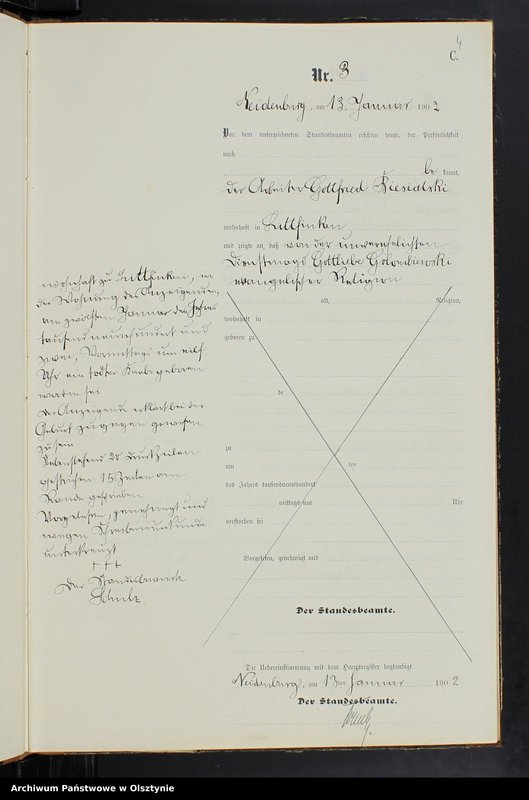 4
C.
Nr. 3
Neidenburg, am 13. Januar 1902
Vor dem unterzeichneten Standesbeamten erschien heute, der Persönlichkeit
nach
be kannt,
der Arbeiter Gottfried
wohnhaft in
und zeigte an, daß von der unverehelichten
Dienstmagd Gottliebe
evangelischer Religion
alt, Religion,
wohnhaft in
geboren zu
da
zu
am ten
des Jahres tausendneunhundert
mittags um Uhr
verstorben sei
Vorgelesen, genehmigt und
Der Standesbeamte.
wohnhaft zu in
der Wohnung des Anzeigenden
am zwölften Januar des Jahres
tausend neunhundert und
zwei, Vormittags um elf
Uhr ein todter Knabe geboren
worden sei
Der Anzeigende erklärt bei der
Geburt zugegen gewesen
zu sein
Nebenstehend Druckzeilen
gestrichen 15 Zeilen am
Rande geschrieben
Vorgelesen, genehmigt und
wegen Schreibensunkunde
unterkreuzt
+++
Der Standesbeamte
Die Uebereinstimmung mit dem Hauptregister beglaubigt
Neidenburg, am 13ten Januar 1902
Der Standesbeamte.
Archiwum Państwowe w Olsztynie